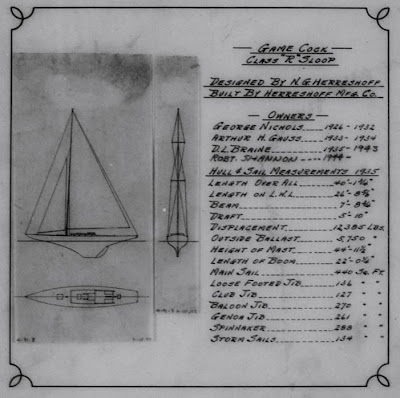 GAME COCK
CLASS "R" SLOOP
DESIGNED BY N.G. HERRESHOFF
BUILT BY HERRESHOFF MFG. CO.
OWNERS
GEORGE NICHOLS 1926 - 1932
ARTHUR H. GAUSS 1933 - 1934
D.L. BRAINE 1935 - 1943
ROBT. SHANNON 1944 -
HULL & SAIL MEASUREMENTS 1935
LENGTH OVER ALL
LENGTH ON L.W.L
BEAM
DRAFT 5'- 10"
DISPLACEMENT 12,385 LBS.
OUTSIDE BALLAST 5,750 "
HEIGHT OF MAST
LENGTH OF BOOM
MAIN SAIL 440 SQ. FT.
LOOSE FOOTED JIB 136 " "
CLUB JIB 127 " "
BALOON JIB 270 " "
GENOA JIB 261 " "
SPINNAKER 288 " "
STORM SAILS 134 " "